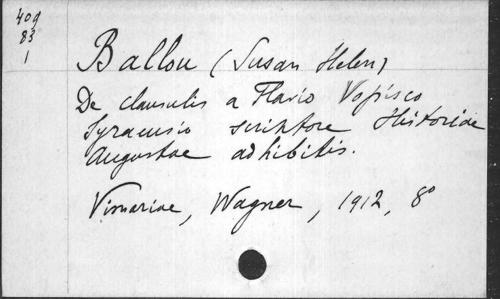 409
83
1
Ballou (Susan Helen)
De clausulis a Flavio Vopisco
Syracusio scriptore Historiae
Augustae adhibitis.
Vimariae, Wagner, 1912, 8°